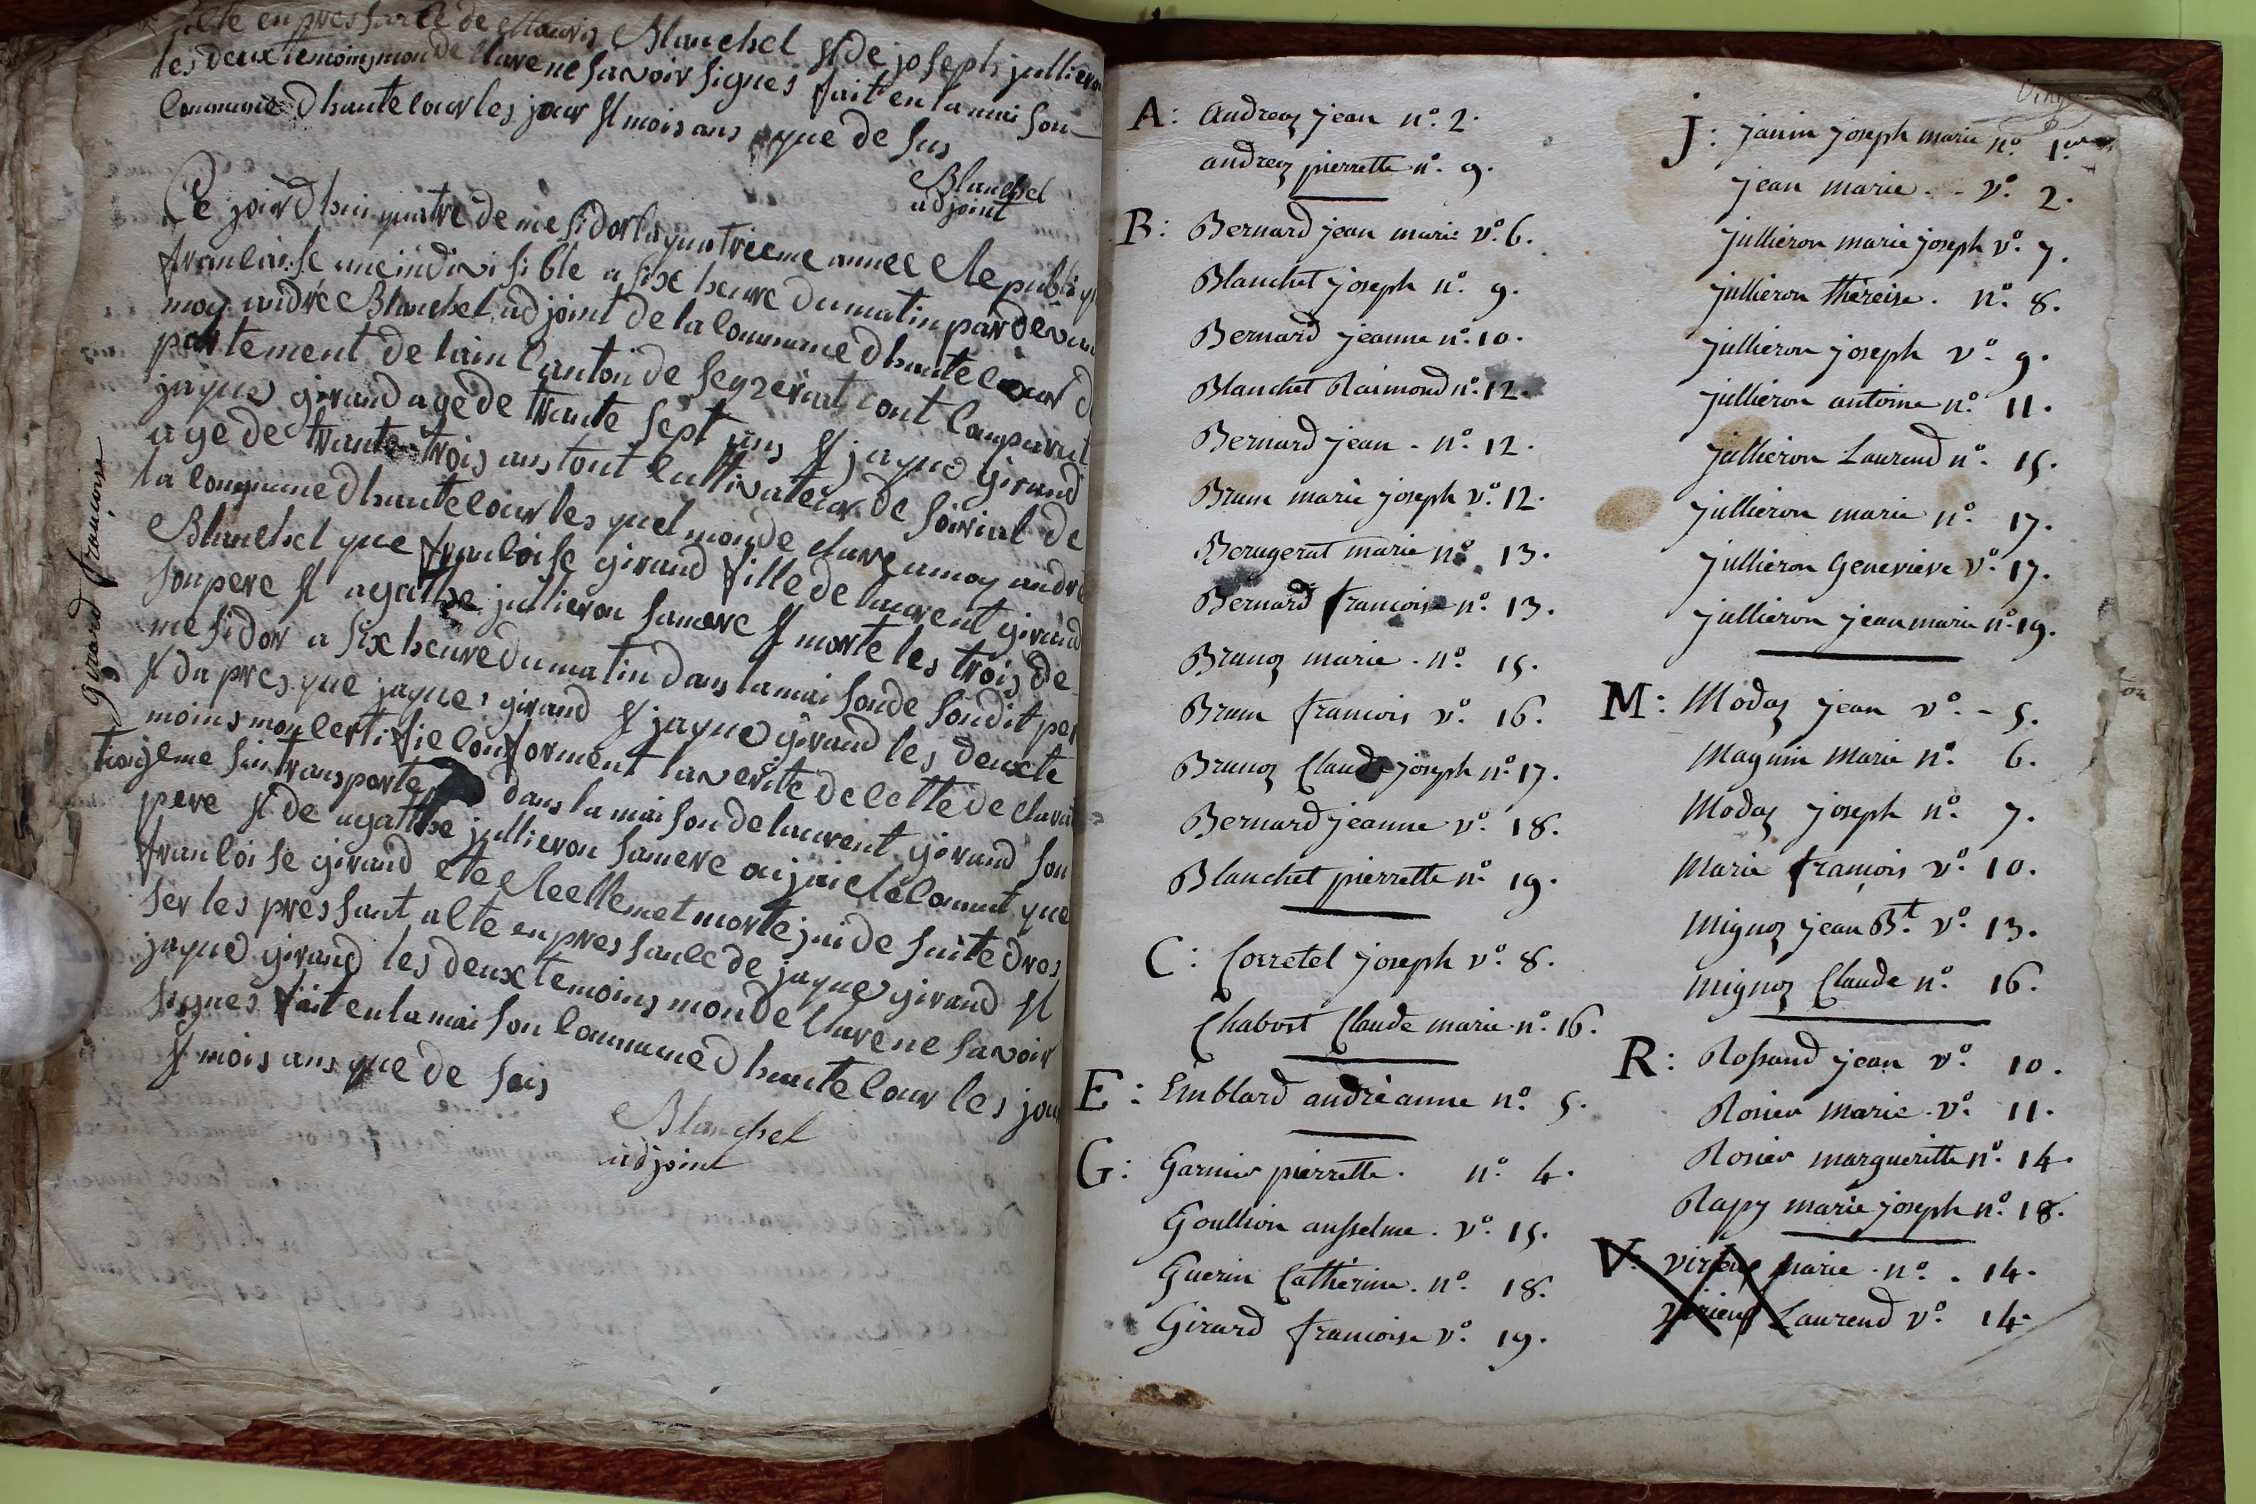 acte en pres sance de Mauris Blanchet et de joseph jullieron
les deux temoins mon de Clare ne savoir signes fait en la mai son
Commune d hautecour les jour et mois ans que de sus
Blanchet
adjoint
Ce jourd hui quatre de me sidor la quatrieme annee Republique
francaise une indivi sible a six heure du matin par devan
moy andré Blanchet adjoint de la Commune d hautecour de
partement de lain Canton de seyzeriat cont Comparut
jaque girand age de trante sept ans et jaque girand
age de trante trois ans tout Cultivateur de soiriat de
la Commune d hautecour les quel mon de Clare a moy andre
Blanchet que francoise girand fille de laurent girand
son pere et agathe jullieron sa mere et morte les trois de
me sidor a six heure du matin dans la mai son de son dit per
et da pres que jaque girand et jaque girand les deux te
moins mon certifie conforment la verite de cette de clara
tiogeme suis transporte dans la mai son de laurent girand son
pere et de agathe jullieron sa mere ou jai Reconnut que
francoise girand ete Reellemet morte jai de suite dres
ser les pres sant acte en pres sance de jaque girand et
jaque girand les deux temoins mon de Clare ne savoir
signes fait en la mai son Commune d hautecour les jour
et mois ans que de sus
Blanchet
adjoint
girard françoise
A: Andreoz jean n.º 2.
andreoz pierrette n.º 9.
B: Bernard jean marie v.º 6.
Blanchet joseph n.º 9.
Bernard jeanne n.º 10.
Blanchet Raimond n.º 12.
Bernard jean . n.º 12.
Brun marie joseph v.º 12.
Berugerat marie n.º 13.
Bernard francoise n.º 13.
Brunoz marie . n.º 15.
Brun francois v.º 16.
Brunoz Claude joseph n.º 17.
Bernard jeanne v.º 18.
Blanchet pierrette n.º 19.
C: Corretel joseph v.º 8.
Chabost Claude marie n.º 16.
E: Emblard andréanne n.º 5.
G: Garnier pierrette . n.º 4.
Goullion ansselme . v.º 15.
Guerin Catherine . n.º 18.
Girard francoise v.º 19.
J: janin joseph marie n.º 1.er
jean marie . . v.º 2.
jullieron marie joseph v.º 7.
jullieron théreise . n.º 8.
jullieron joseph v.º 9.
jullieron antoine n.º 11.
jullieron Laurend n.º 15.
jullieron marie n.º 17.
jullieron Genevieve v.º 17.
jullieron jean marie n.º 19.
M: Modaz jean v.º - 5.
Magnin marie n.º 6.
Modaz joseph n.º 7.
Marie françois v.º 10.
Mignoz jean B.t v.º 13.
Mignoz Claude n.º 16.
R: Rossand jean v.º 10.
Rosier marie v.º 11.
Rosier margueritte n.º 14.
Rapy marie joseph n.º 18.
V: virieux marie . n.º . 14.
virieux Laurend v.º 14.